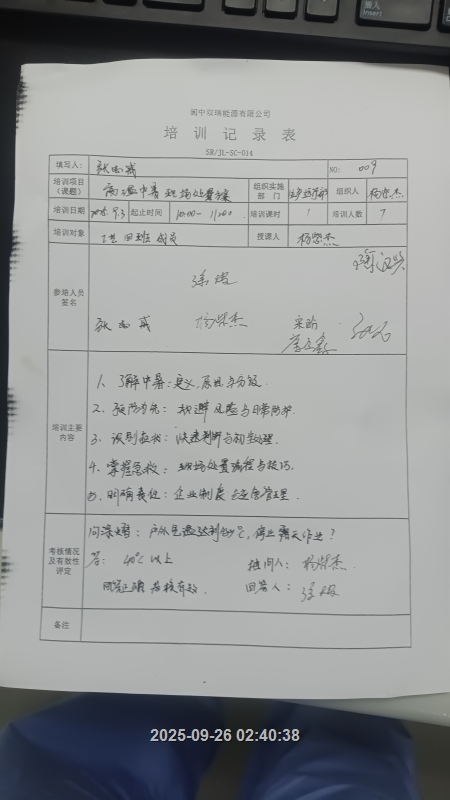 嵌入
Insert
阆中双瑞能源有限公司
培训记录表
SR/JL-SC-014
填写人： NO: 009
培训项目（课题） 高温中暑现场处置方案 组织实施部门 组织人 杨荣杰
培训日期 2025.9.3 起止时间 10:00- 11:00 培训课时 1 培训人数 7
培训对象 四班成员 授课人 杨荣杰
参培人员签名
徐
杨荣杰
培训主要内容
1、了解中暑：定义、原因与分级.
2、预防为先：规避风险与日常防护.
3、识别症状：快速判断与初步处理.
4、掌握急救：现场处置流程与技巧.
5、明确责任：企业制度与应急管理.
考核情况及有效性评定
问 ：户外气温达到多少℃，停止露天作业？
答： 40℃以上 提问人：杨荣杰.
回答正确 考核有效. 回答人：徐
备注
2025-09-26 02:40:38